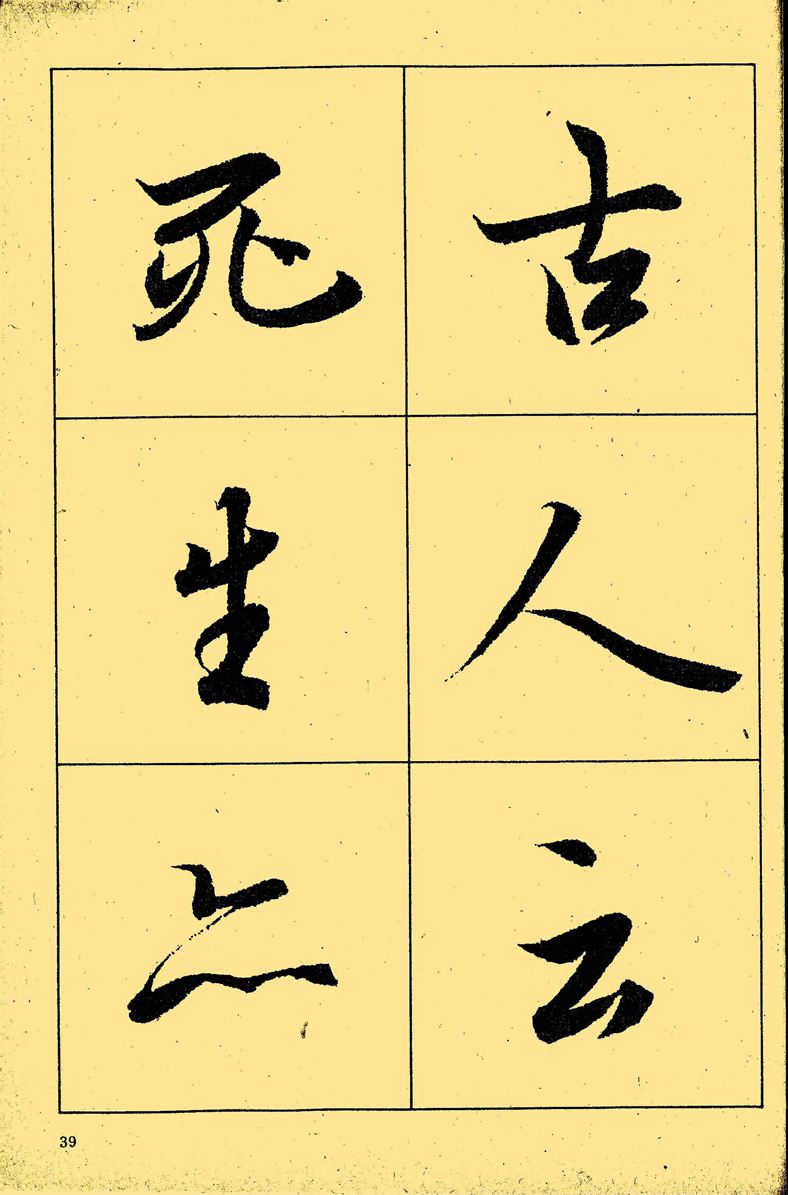 古人云
死生亦
39